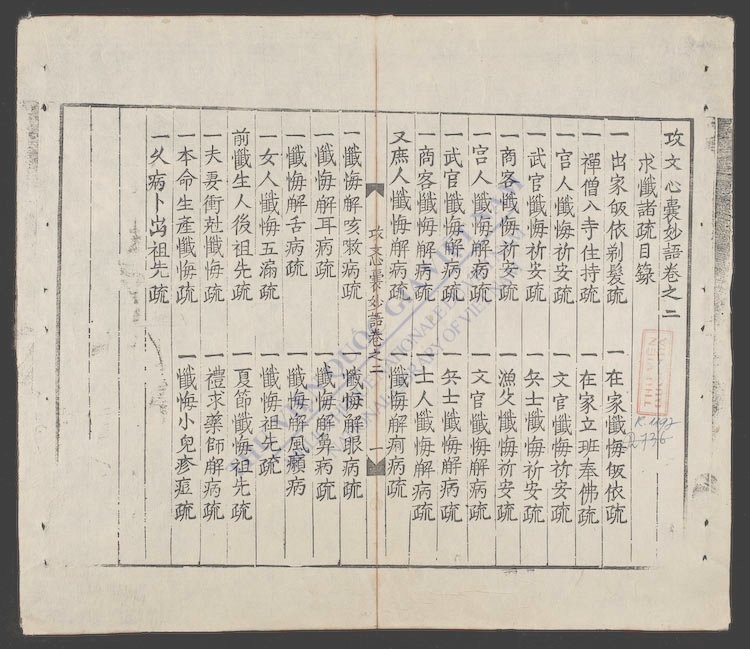 攻文心囊妙語卷之二
求懺諸疏目錄
一出家皈依剃髮疏 一在家懺悔皈依疏
一禪僧入寺住持疏 一在家立班奉佛疏
一官人懺悔祈安疏 一文官懺悔祈安疏
一武官懺悔祈安疏 一兵士懺悔祈安疏
一商客懺悔祈安疏 一漁父懺悔祈安疏
一官人懺悔解病疏 一文官懺悔解病疏
一武官懺悔解病疏 一兵士懺悔解病疏
一商客懺悔解病疏 一士人懺悔解病疏
又庶人懺悔解病疏 懺悔解疴病疏
攻文心囊妙語卷之二 一
一懺悔解咳嗽病疏 一懺悔解眼病疏
一懺悔解耳病疏 一懺悔解鼻病疏
一懺悔解舌病疏 一懺悔解風癲病
一女人懺悔五漏疏 一懺悔祖先疏
前懺生人後祖先疏 一夏節懺悔祖先疏
一夫妻衝尅懺悔疏 一禮求藥師解病疏
一本命生產懺悔疏 一懺悔小兒疹痘疏
一久病卜出祖先疏
THƯ VIỆN QUỐC GIA VIỆT NAM
BIBLIOTHÈQUE NATIONALE DU VIETNAM
NATIONAL LIBRARY OF VIETNAM